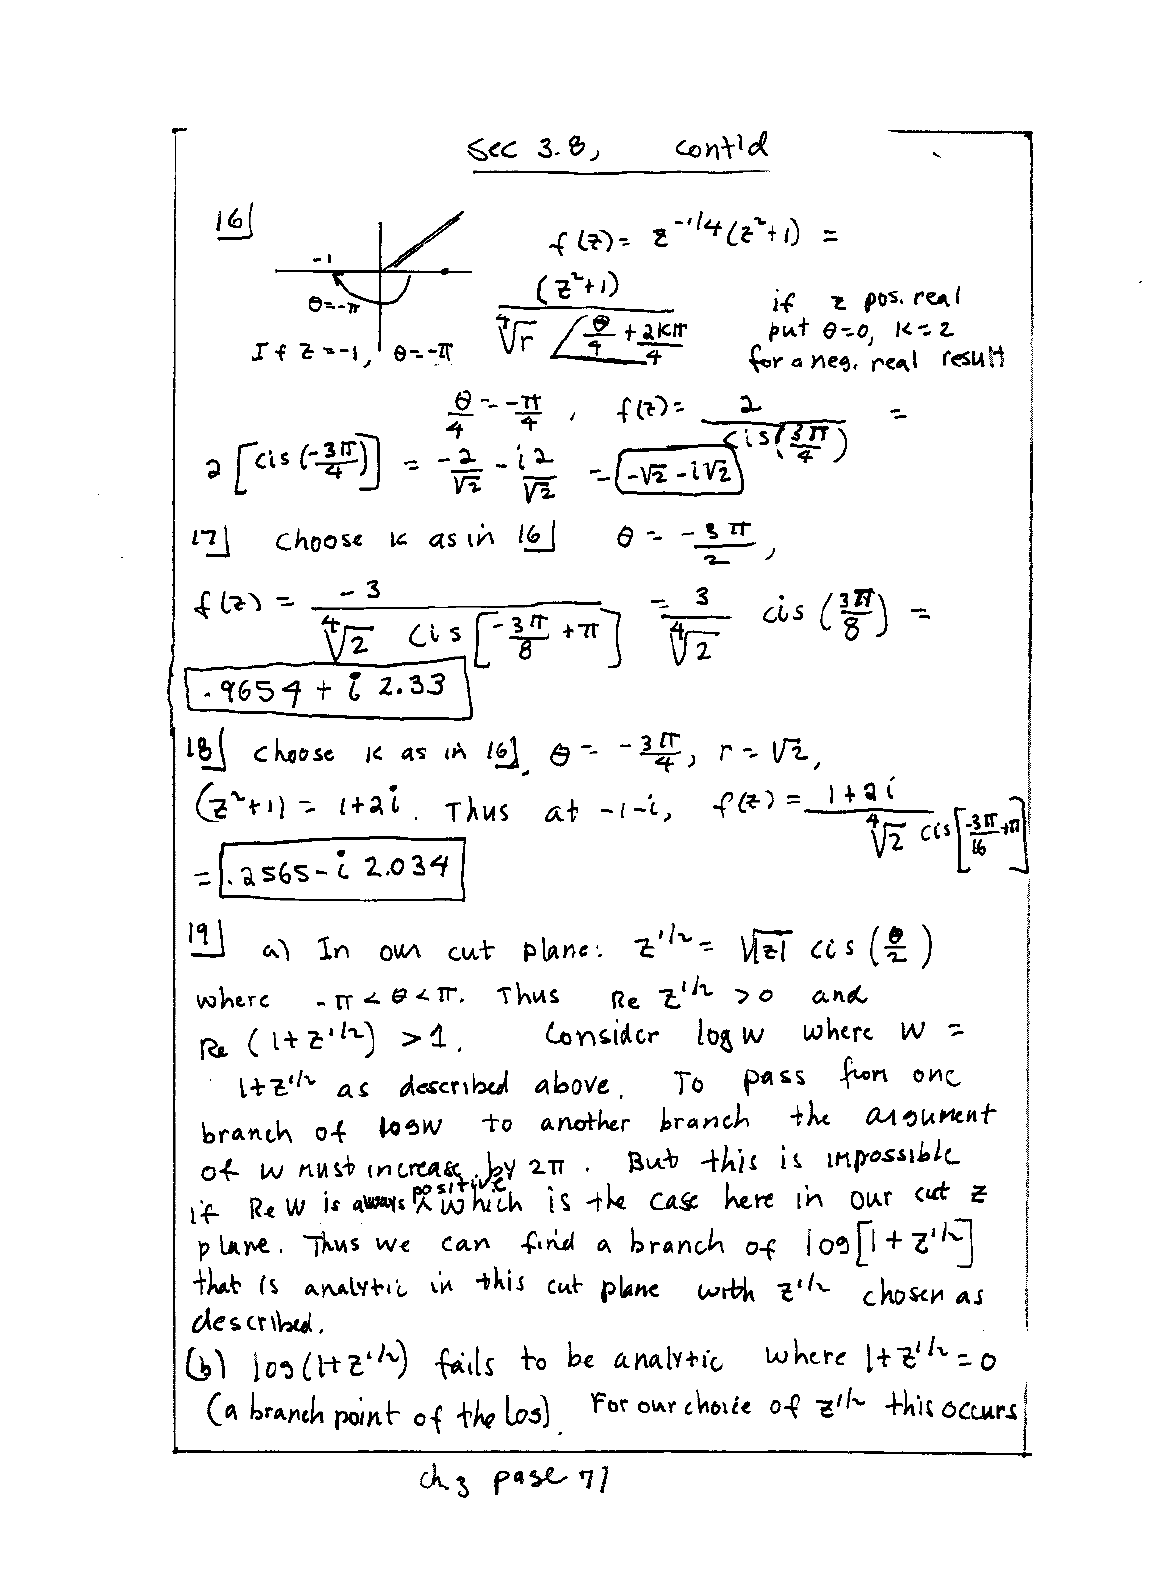 Sec 3.8, cont'd
16] f(z) = z^{-1/4}(z²+1) =
-1
θ=-π
If z=-1, θ=-π
(z²+1) / ∜r ∠(θ/4 + 2kπ/4)
if z pos. real
put θ=0, k=2
for a neg. real result
θ/4 = -π/4, f(z) = 2 / cis(3π/4) =
2[cis(-3π/4)] = -2/√2 - i2/√2 = -√2 - i√2
17] Choose k as in 16] θ = -3π/2,
f(z) = -3 / (∜2 cis[-3π/8 + π]) = 3/∜2 cis(3π/8) =
.9654 + i 2.33
18] choose k as in 16], θ = -3π/4, r = √2,
(z²+1) = 1+2i. Thus at -1-i, f(z) = (1+2i) / (∜2 cis[-3π/16 + π])
= .2565 - i 2.034
19] a) In our cut plane: z^{1/2} = √|z| cis(θ/2)
where -π < θ < π. Thus Re z^{1/2} > 0 and
Re (1+z^{1/2}) > 1. Consider log w where w =
1+z^{1/2} as described above. To pass from one
branch of log w to another branch the argument
of w must increase by 2π. But this is impossible
if Re w is always positive which is the case here in our cut z
plane. Thus we can find a branch of log[1+z^{1/2}]
that is analytic in this cut plane with z^{1/2} chosen as
described.
(b) log(1+z^{1/2}) fails to be analytic where 1+z^{1/2} = 0
(a branch point of the log). For our choice of z^{1/2} this occurs
ch 3 page 71